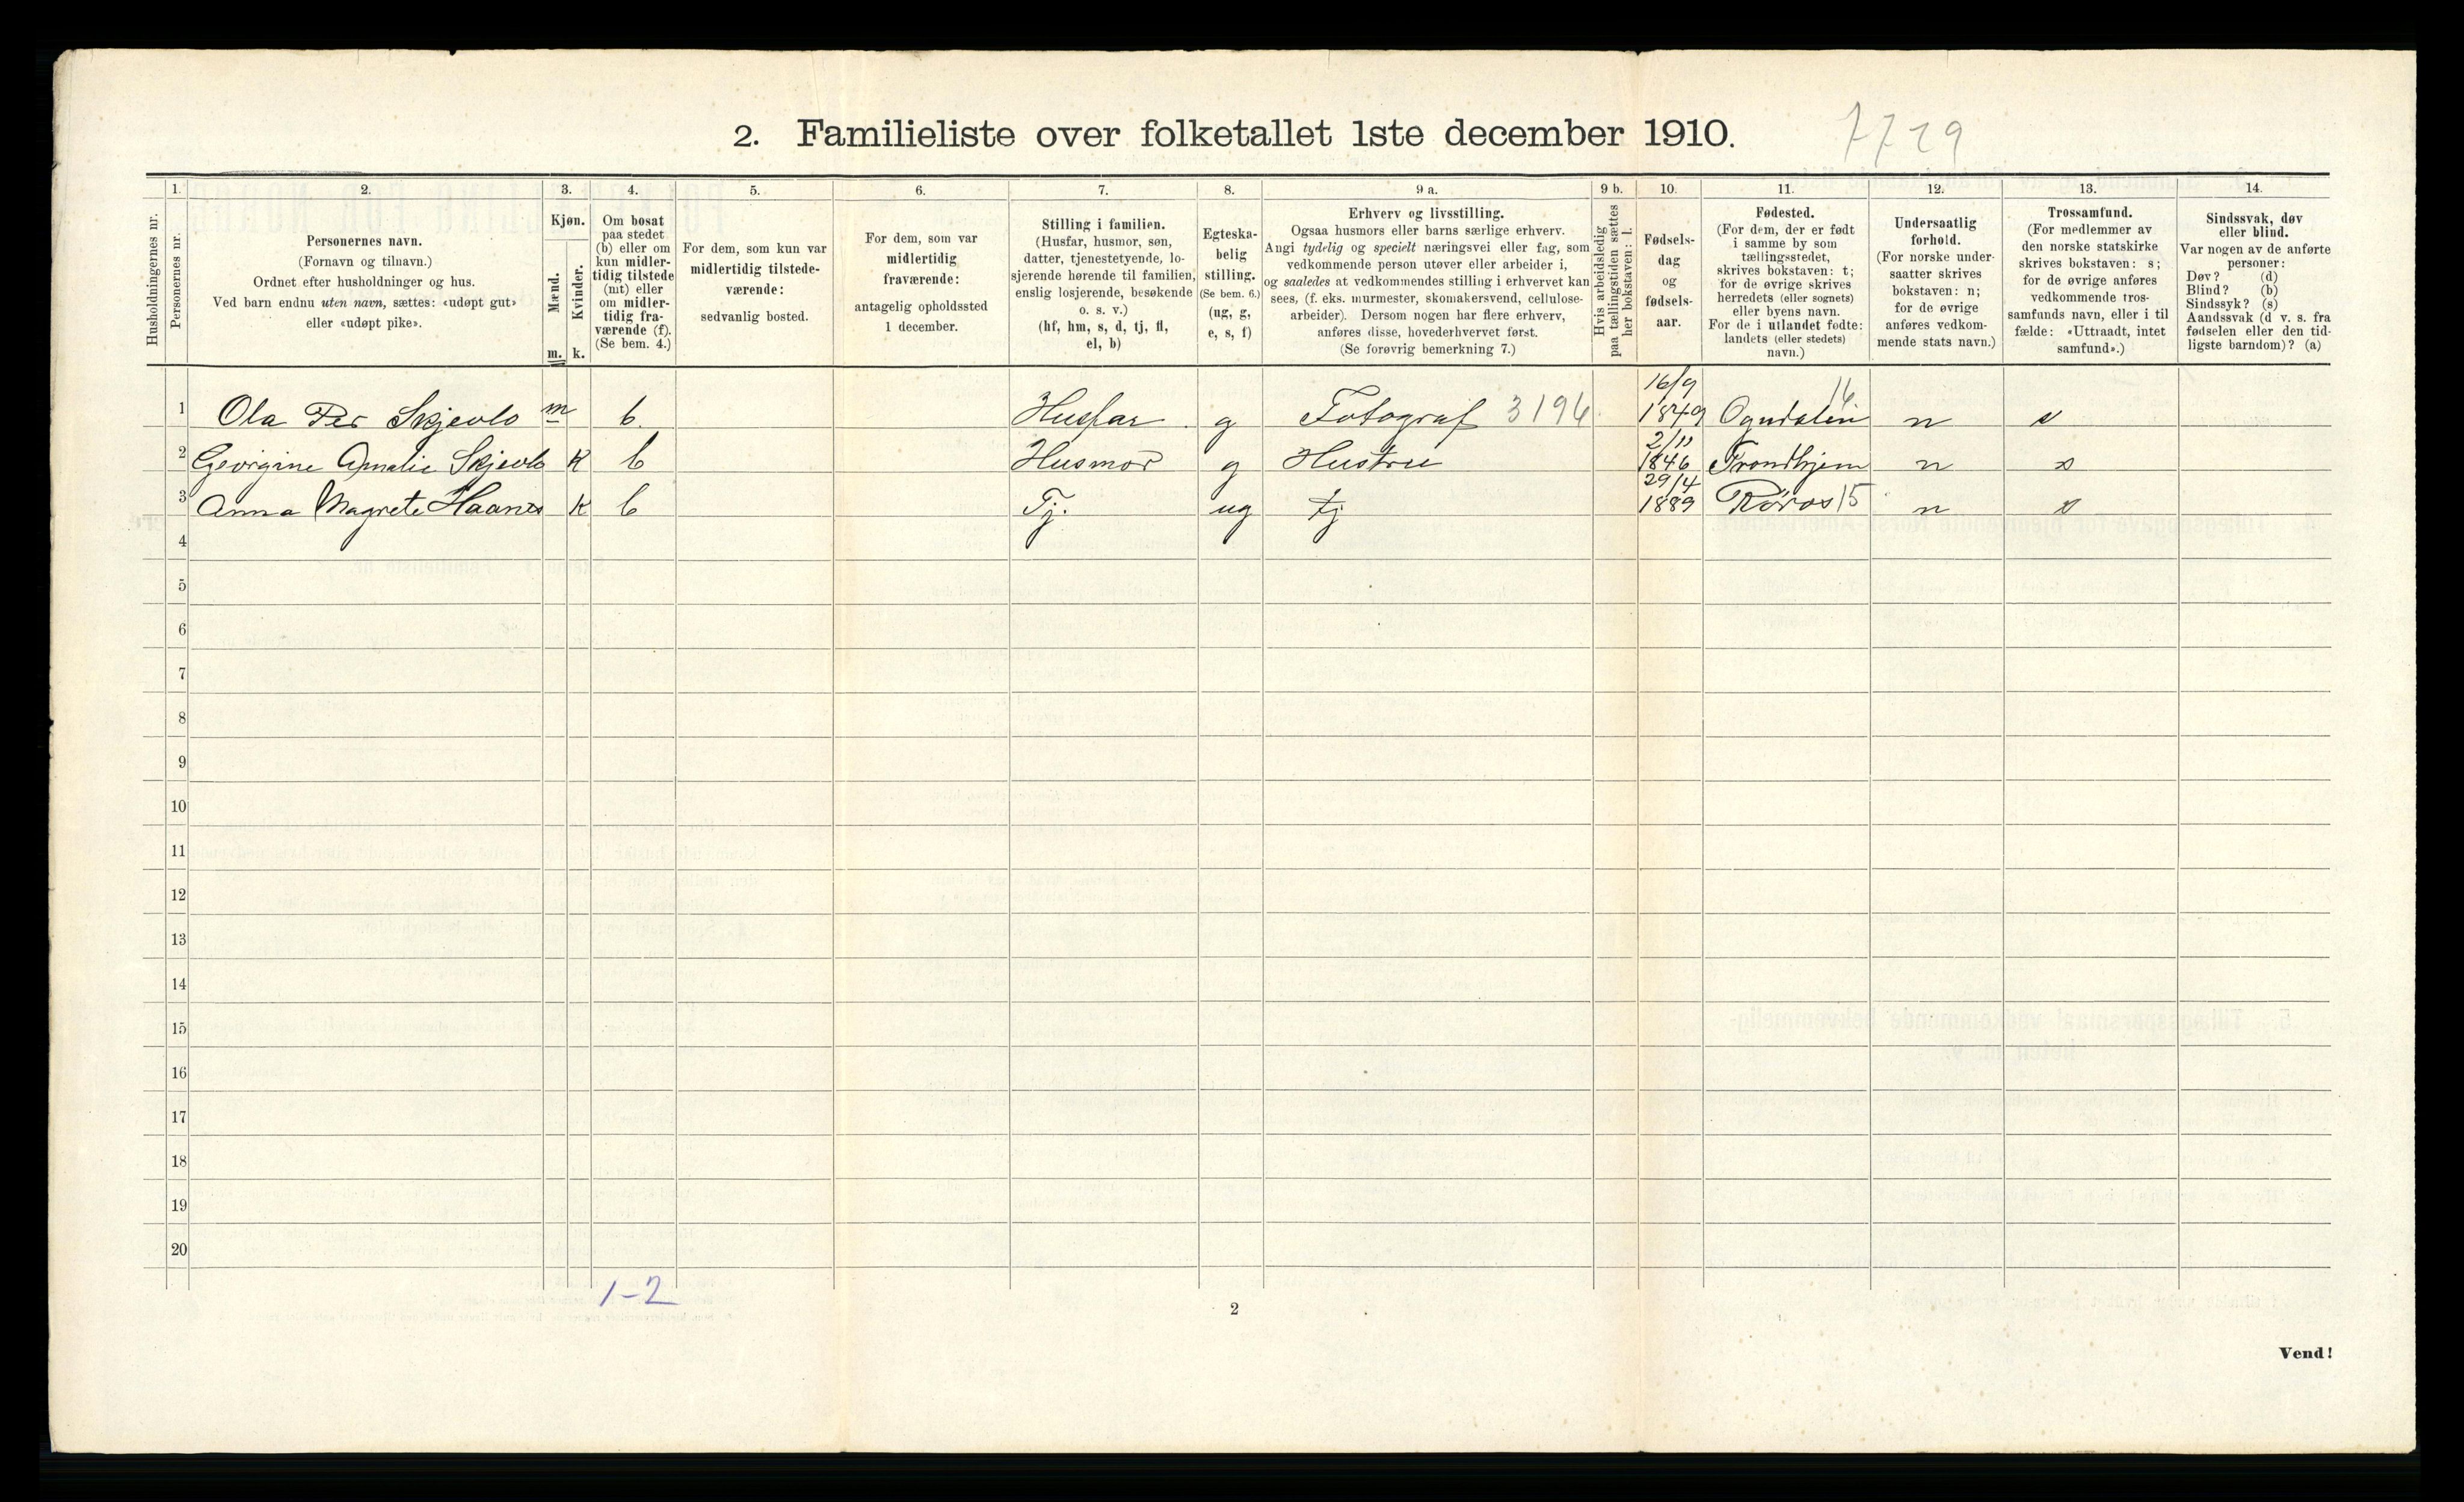 2. Familieliste over folketallet 1ste december 1910.
7729
Husholdningernes nr.
1.
Personernes nr.
2.
Personernes navn.
(Fornavn og tilnavn.)
Ordnet efter husholdninger og hus.
Ved barn endnu uten navn, sættes: «udøpt gut»
eller «udøpt pike».
3.
Kjøn.
Mænd.
Kvinder.
m. k.
4.
Om bosat
paa stedet
(b) eller om
kun midler-
tidig tilstede
(mt) eller
om midler-
tidig fra-
værende (f).
(Se bem. 4.)
5.
For dem, som kun var
midlertidig tilstede-
værende:
sedvanlig bosted.
6.
For dem, som var
midlertidig
fraværende:
antagelig opholdssted
1 december.
7.
Stilling i familien.
(Husfar, husmor, søn,
datter, tjenestetyende, lo-
sjerende hørende til familien,
enslig losjerende, besøkende
o. s. v.)
(hf, hm, s, d, tj, fl,
el, b)
8.
Egteska-
belig
stilling.
(Se bem. 6.)
(ug, g,
e, s, f)
9 a.
Erhverv og livsstilling.
Ogsaa husmors eller barns særlige erhverv.
Angi tydelig og specielt næringsvei eller fag, som
vedkommende person utøver eller arbeider i,
og saaledes at vedkommendes stilling i erhvervet kan
sees, (f. eks. murmester, skomakersvend, cellulose-
arbeider). Dersom nogen har flere erhverv,
anføres disse, hovederhvervet først.
(Se forøvrig bemerkning 7.)
9 b.
Hvis arbeidsledig
paa tællingstiden sættes
her bokstaven: l.
10.
Fødsels-
dag
og
fødsels-
aar.
11.
Fødested.
(For dem, der er født
i samme by som
tællingsstedet,
skrives bokstaven: t;
for de øvrige skrives
herredets (eller sognets)
eller byens navn.
For de i utlandet fødte:
landets (eller stedets)
navn.)
12.
Undersaatlig
forhold.
(For norske under-
saatter skrives
bokstaven: n;
for de øvrige
anføres vedkom-
mende stats navn.)
13.
Trossamfund.
(For medlemmer av
den norske statskirke
skrives bokstaven: s;
for de øvrige anføres
vedkommende tros-
samfunds navn, eller i til
fælde: «Uttraadt, intet
samfund».)
14.
Sindssvak, døv
eller blind.
Var nogen av de anførte
personer:
Døv? (d)
Blind? (b)
Sindssyk? (s)
Aandssvak (d v. s. fra
fødselen eller den tid-
ligste barndom)? (a)
1 Ola Per Skjevlo m b. Husfar g Fotograf 3196 16/9 1849 Ogndalen 16 n s
2 Georgine Amalie Skjevlo K b Husmor g Hustru 2/11 1846 Trondhjem n s
3 Anna Magrete Haanes K b Tj. ug tj 29/4 1889 Røros 15 n s
4
5
6
7
8
9
10
11
12
13
14
15
16
17
18
19
20
1-2
2
Vend!